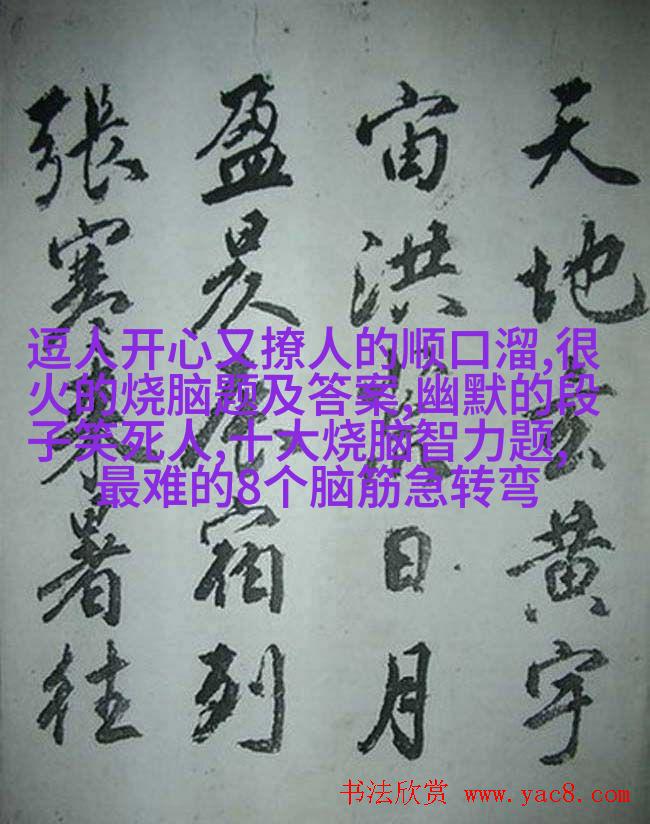 天地玄黄宇
宙洪荒日月
盈昃辰宿列
張寒来暑往
逗人开心又撩人的顺口溜,很
火的烧脑题及答案,幽默的段
子笑死人,十大烧脑智力题,
最难的8个脑筋急转弯
书法欣赏 www.yac8.com